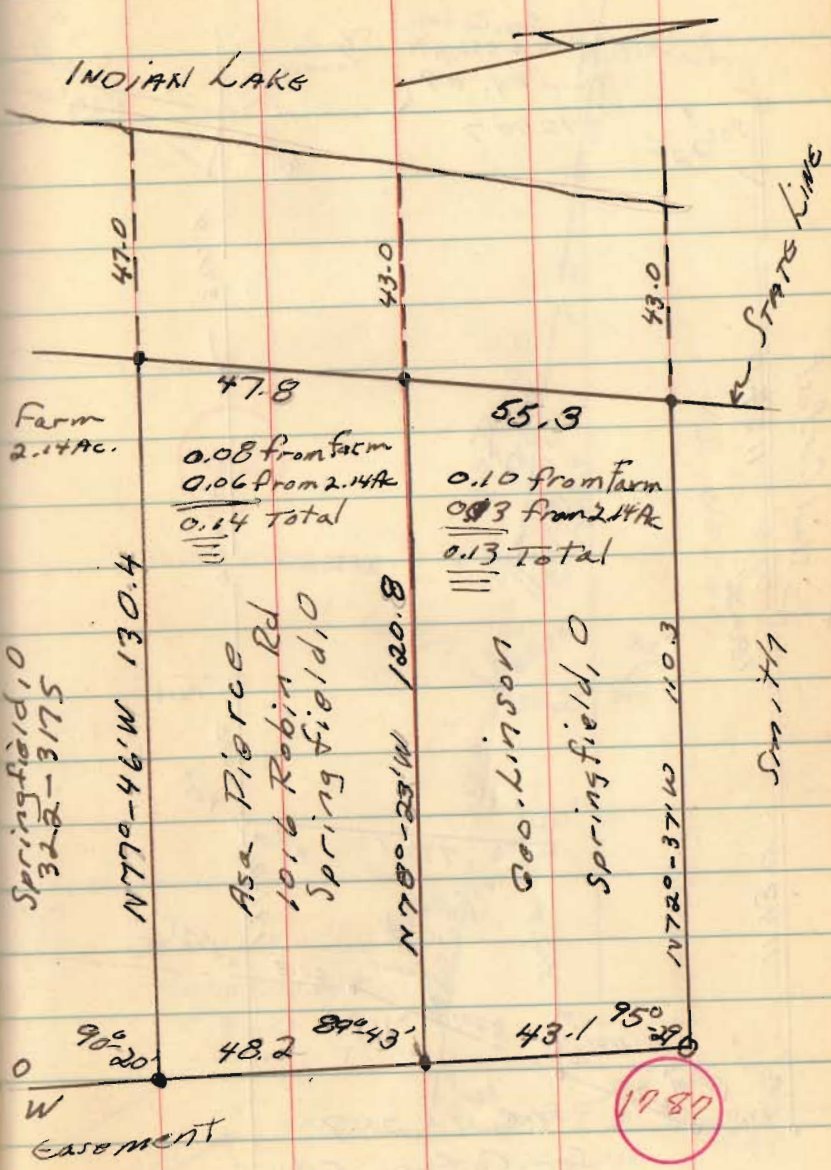 INDIAN LAKE
47.0
43.0
43.0
STATE LINE
47.8
55.3
Farm
2.14 Ac.
0.08 from farm
0.06 from 2.14 Ac
0.14 Total
0.10 from Farm
from 2.14 Ac
0.13 Total
Springfield, O
322-3175
N77°-46'W 130.4
Asa Pierce
1016 Robin Rd
Springfield, O
N78°-23'W 120.8
Geo. Linson
Springfield, O
N72°-37'W 110.3
Smith
90°-20'
48.2
89°-43'
43.1
95°-29'
O
W
Easement
1787